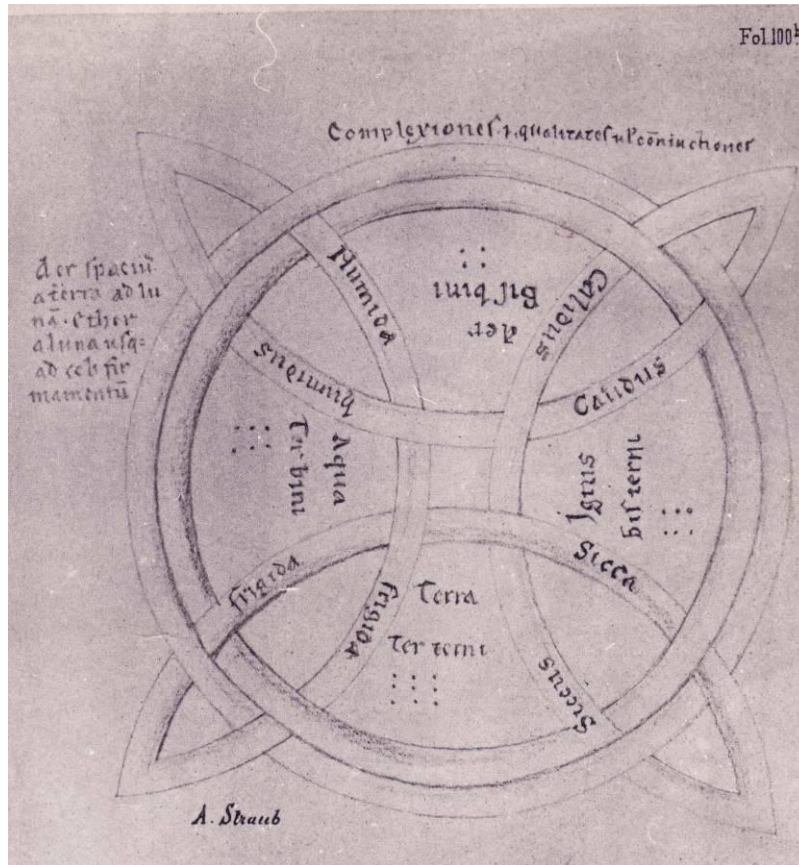 Fol.100b
Complexiones .i. qualitates ul' cōniūctiones
Aer spaciū
a terra ad lu
nā. ether
a luna usq=
ad celi fir
mamentū
Humida
Calidus
Aer
Bis bini
humidus
Calidus
Aqua
Ter bini
Ignis
bis terni
frigida
Sicca
frigida
Terra
Ter terni
Siccus
A. Straub